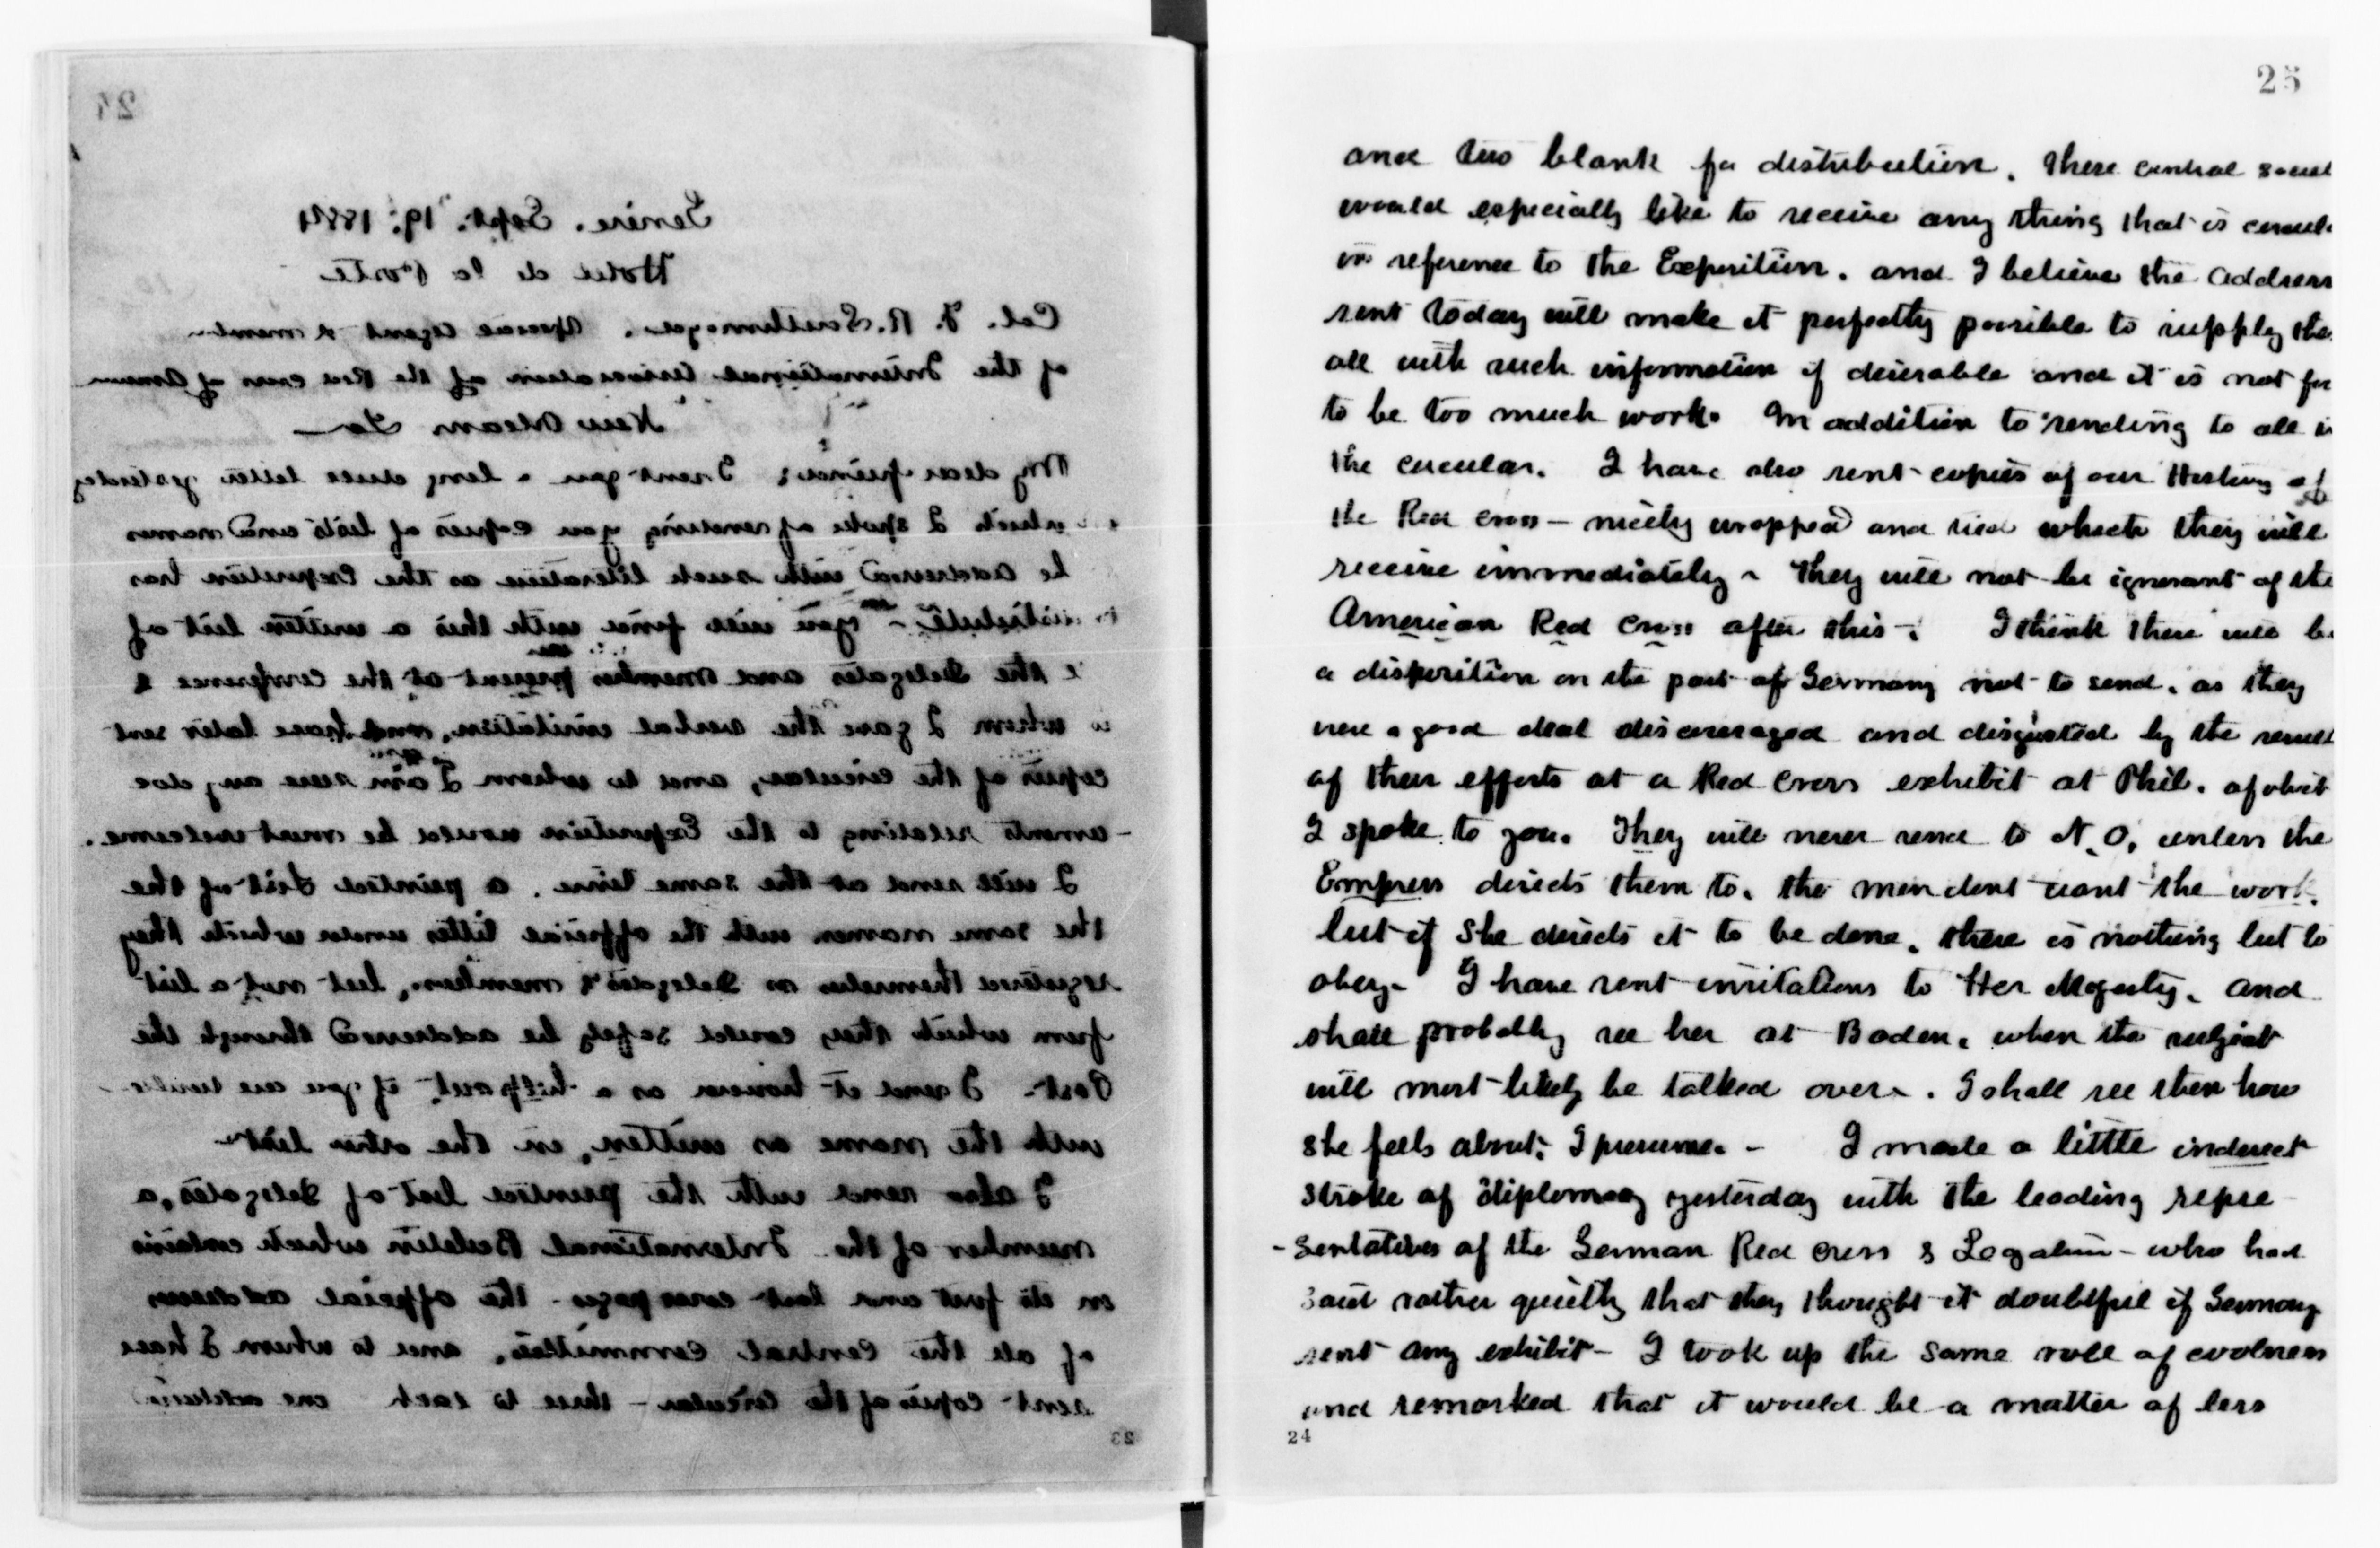 24
Genève. Sept. 19. 1884
Hotel de la Poste
Col. F. R. Southmayd. Special Agent & member
of the International Association of the Red cross of
New Orleans La
My dear friend: I sent you a long, dull letter yesterday
which I spoke of sending you copies of lists and names
be addressed with such literature as the Exposition has
distribute - you will find with this a written list of
the delegates and members present at the conference &
whom I gave the verbal invitation, and have later sent
copies of the circular, and to whom I am sure any doc
-uments relating to the Exposition would be most welcome.
I will send at the same time, a printed List of the
the same names with the official titles under which they
registered themselves as delegates & members, but not a list
from which they could safely be addressed through the
Post. I send it however as a help out, if you are
with the name as written, in the other list
I also send with the printed list of delegates, a
number of the International Bulletin which contains
on its first and last cover pages - the official address
of all the central committees, and to whom I have
sent copies of the circular - three to each one
23
25
and two blank for distribution. These central
would especially like to receive any thing that is
in reference to the Exposition. and I believe the address
sent today will make it perfectly possible to supply
all with such information if desirable and it is not
to be too much work. In addition to sending to all
the circular. I have also sent copies of our History of
the Red cross - nicely wrapped and tied which they will
receive immediately - They will not be ignorant of the
American Red Cross after this -. I think there will be
a disposition on the part of Germany not to send. as they
were a good deal discouraged and disgusted by the result
of their efforts at a Red Cross exhibit at Phil. of which
I spoke to you. They will never send to N. O. unless the
Empress directs them to. the men dont want the work.
but if She directs it to be done, there is nothing but to
obey - I have sent invitations to Her Majesty. and
shall probably see her at Baden. when the subject
will most likely be talked over -. I shall see then how
she feels about. I presume. - I made a little indirect
stroke of diplomacy yesterday with the leading repre
-sentatives of the German Red cross & Legation - who had
said rather quietly that they thought it doubtful if Germany
sent any exhibit - I took up the same role of coolness
and remarked that it would be a matter of less
24